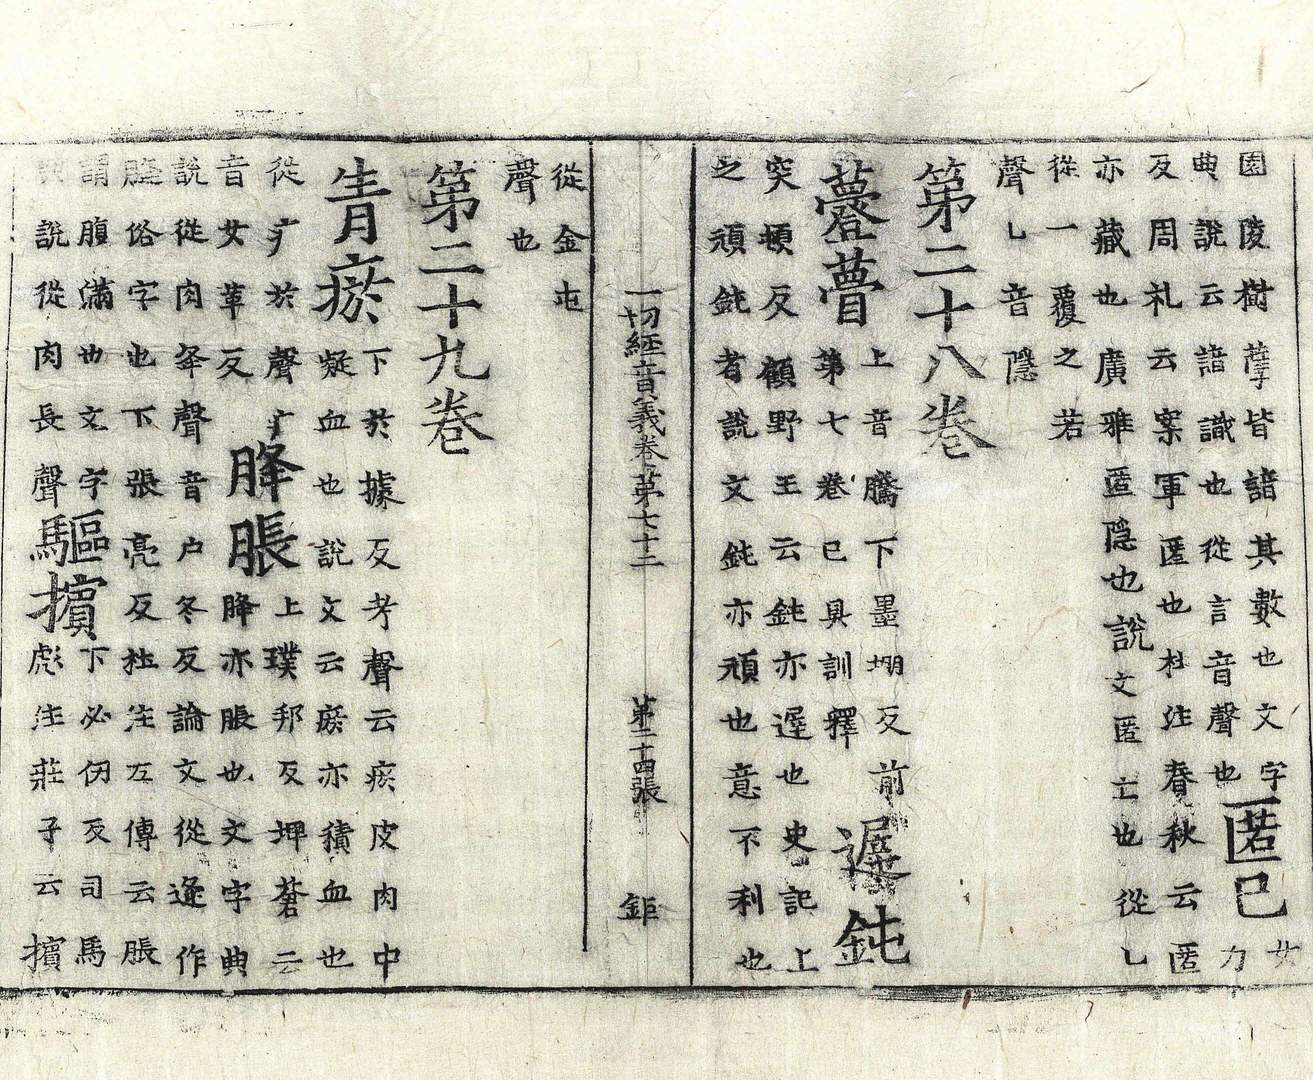 園陵樹孽皆諳其數也文字
典說云諳識也從言音聲也
匿己
女力
反周礼云案軍匿也杜注春秋云匿
亦藏也廣雅匿隠也說文匿亡也從乚
從一覆之若
聲乚音隱
第二十八卷
薹瞢
上音騰下墨堋反前
第七卷已具訓釋
遲鈍
突頓反顧野王云鈍亦遲也史記上
之頑鈍者說文鈍亦頑也意不利也
一切經音義卷第七十三 第二十四張 鉅
從金屯
聲也
第二十九卷
青瘀
下於據反考聲云瘀皮肉中
凝血也說文云瘀亦積血也
從疒於聲疒
音女革反
胮脹
上璞邦反埤蒼云
胮亦脹也文字典
說從肉夅聲音户冬反論文從逄作
胮俗字也下張亮反杜注左傳云脹
謂腹滿也文字
說從肉長聲
驅擯
下必仞反司馬
彪注莊子云擯